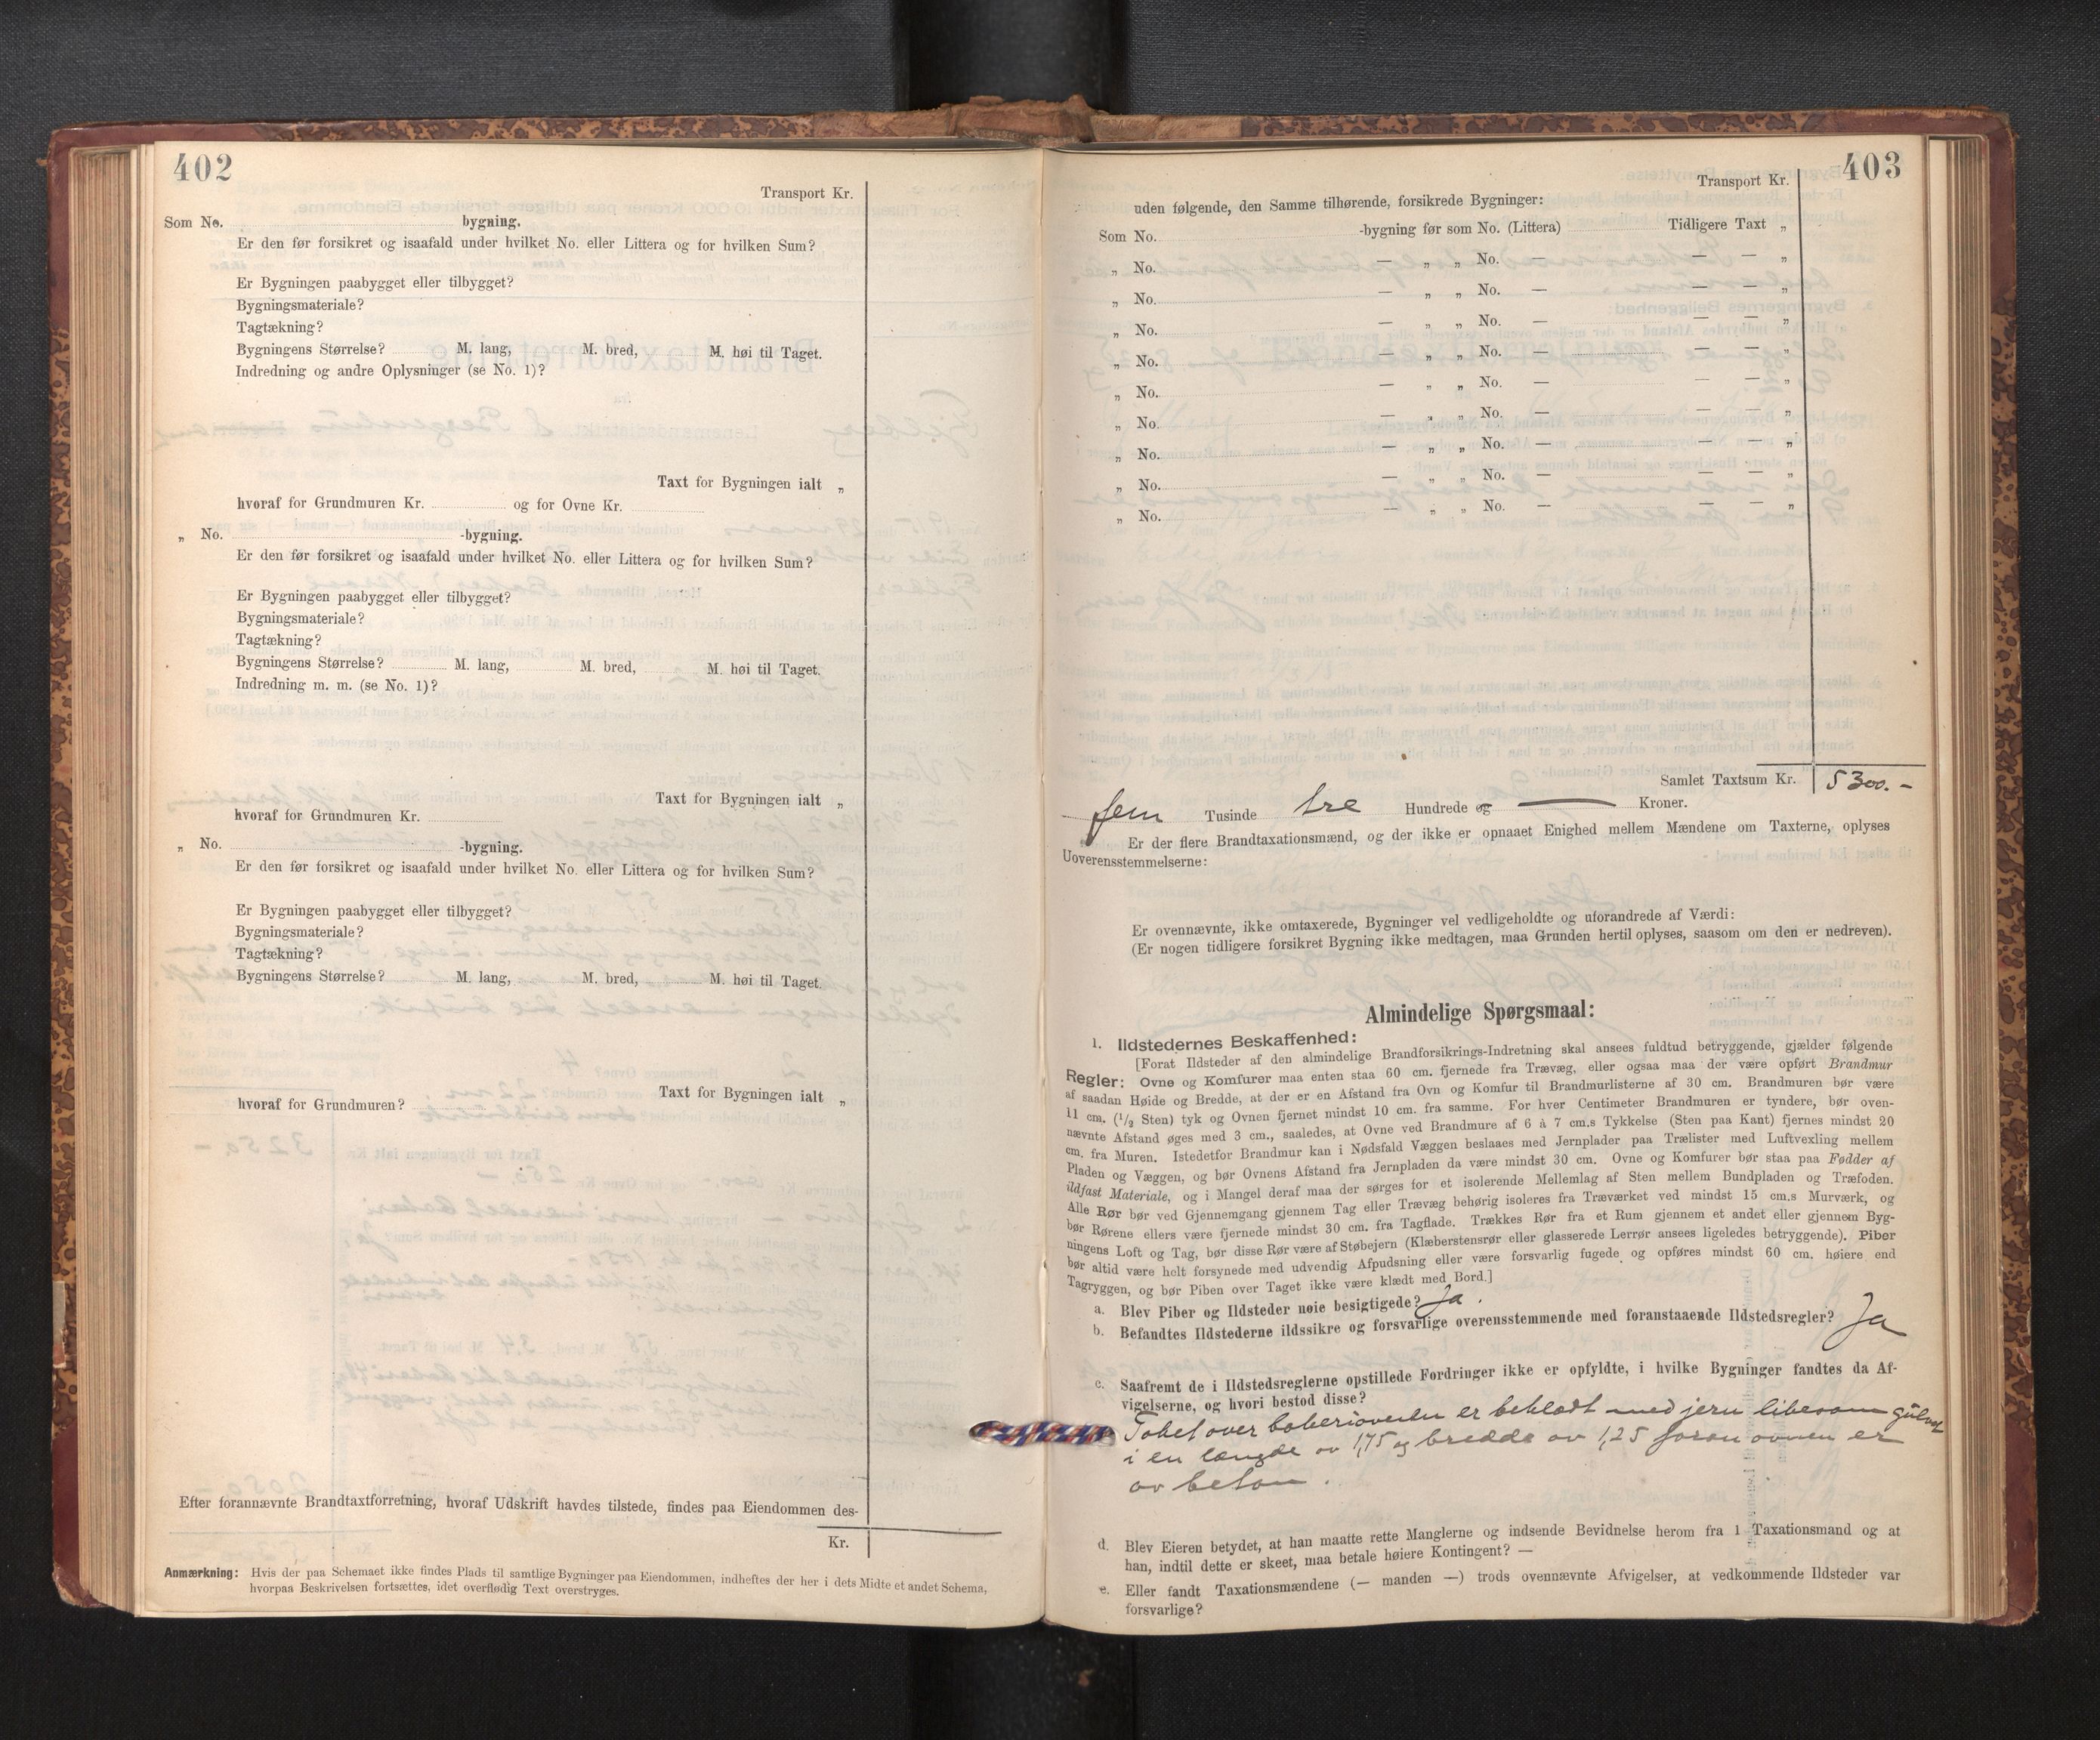 402
Transport Kr.
Som No. bygning.
Er den før forsikret og isaafald under hvilket No. eller Littera og for hvilken Sum?
Er Bygningen paabygget eller tilbygget?
Bygningsmateriale?
Tagtækning?
Bygningens Størrelse? M. lang, M. bred, M. høi til Taget.
Indredning og andre Oplysninger (se No. 1)?
Taxt for Bygningen ialt „
hvoraf for Grundmuren Kr. og for Ovne Kr.
„ No. -bygning.
Er den før forsikret og isaafald under hvilket No. eller Littera og for hvilken Sum?
Er Bygningen paabygget eller tilbygget?
Bygningsmateriale?
Tagtækning?
Bygningens Størrelse? M. lang, M. bred, M. høi til Taget.
Indredning m. m. (se No. 1)?
Taxt for Bygningen ialt „
hvoraf for Grundmuren Kr.
„ No. -bygning.
Er den før forsikret og isaafald under hvilket No. eller Littera og for hvilken Sum?
Er Bygningen paabygget eller tilbygget?
Bygningsmateriale?
Tagtækning?
Bygningens Størrelse? M. lang, M. bred, M. høi til Taget.
Taxt for Bygningen ialt „
hvoraf for Grundmuren?
Efter forannævnte Brandtaxtforretning, hvoraf Udskrift havdes tilstede, findes paa Eiendommen des-
Kr.
Anmærkning: Hvis der paa Schemaet ikke findes Plads til samtlige Bygninger paa Eiendommen, indheftes der her i dets Midte et andet Schema,
hvorpaa Beskrivelsen fortsættes, idet overflødig Text overstryges.
403
Transport Kr.
uden følgende, den Samme tilhørende, forsikrede Bygninger:
Som No. -bygning før som No. (Littera) Tidligere Taxt „
„ No. — „ „ No. — — — „
„ No. — „ „ No. — — — „
„ No. — „ „ No. — — — „
„ No. — „ „ No. — — — „
„ No. — „ „ No. — — — „
„ No. — „ „ No. — — — „
„ No. — „ „ No. — — — „
„ No. — „ „ No. — — — „
„ No. — „ „ No. — — — „
Samlet Taxtsum Kr. 5300.-
fem Tusinde tre Hundrede og — Kroner.
Er der flere Brandtaxationsmænd, og der ikke er opnaaet Enighed mellem Mændene om Taxterne, oplyses
Uoverensstemmelserne:
Er ovennævnte, ikke omtaxerede, Bygninger vel vedligeholdte og uforandrede af Værdi:
(Er nogen tidligere forsikret Bygning ikke medtagen, maa Grunden hertil oplyses, saasom om den er nedreven).
Almindelige Spørgsmaal:
1. Ildstedernes Beskaffenhed:
[Forat Ildsteder af den almindelige Brandforsikrings-Indretning skal ansees fuldtud betryggende, gjælder følgende
Regler: Ovne og Komfurer maa enten staa 60 cm. fjernede fra Trævæg, eller ogsaa maa der være opført Brandmur
af saadan Høide og Bredde, at der er en Afstand fra Ovn og Komfur til Brandmurlisterne af 30 cm. Brandmuren bør være
11 cm. (1/2 Sten) tyk og Ovnen fjernet mindst 10 cm. fra samme. For hver Centimeter Brandmuren er tyndere, bør oven-
nævnte Afstand øges med 3 cm., saaledes, at Ovne ved Brandmure af 6 à 7 cm.s Tykkelse (Sten paa Kant) fjernes mindst 20
cm. fra Muren. Istedetfor Brandmur kan i Nødsfald Væggen beslaaes med Jernplader paa Trælister med Luftvexling mellem
Pladen og Væggen, og bør Ovnens Afstand fra Jernpladen da være mindst 30 cm. Ovne og Komfurer bør staa paa Fødder af
ildfast Materiale, og i Mangel deraf maa der sørges for et isolerende Mellemlag af Sten mellem Bundpladen og Træfoden.
Alle Rør bør ved Gjennemgang gjennem Tag eller Trævæg behørig isoleres fra Træværket ved mindst 15 cm.s Murværk, og
bør Rørene ellers være fjernede mindst 30 cm. fra Tagflade. Trækkes Rør fra et Rum gjennem et andet eller gjennem Byg-
ningens Loft og Tag, bør disse Rør være af Støbejern (Klæberstensrør eller glasserede Lerrør ansees ligeledes betryggende). Piber
bør altid være helt forsynede med udvendig Afpudsning eller være forsvarlig fugede og opføres mindst 60 cm. høiere end
Tagryggen, og bør Piben over Taget ikke være klædt med Bord.]
a. Blev Piber og Ildsteder nøie besigtigede? Ja.
b. Befandtes Ildstederne ildssikre og forsvarlige overensstemmende med foranstaaende Ildstedsregler? Ja
c. Saafremt de i Ildstedsreglerne opstillede Fordringer ikke er opfyldte, i hvilke Bygninger fandtes da Af-
vigelserne, og hvori bestod disse?
Taket over bakeriovnen er beklædt med jern likesom gulvet
i en længde av 1,75 og bredde av 1,25 foran ovnen er
av beton.
d. Blev Eieren betydet, at han maatte rette Manglerne og indsende Bevidnelse herom fra 1 Taxationsmand og at
han, indtil dette er skeet, maa betale høiere Kontingent? —
e. Eller fandt Taxationsmændene (— manden —) trods ovennævnte Afvigelser, at vedkommende Ildsteder var
forsvarlige?